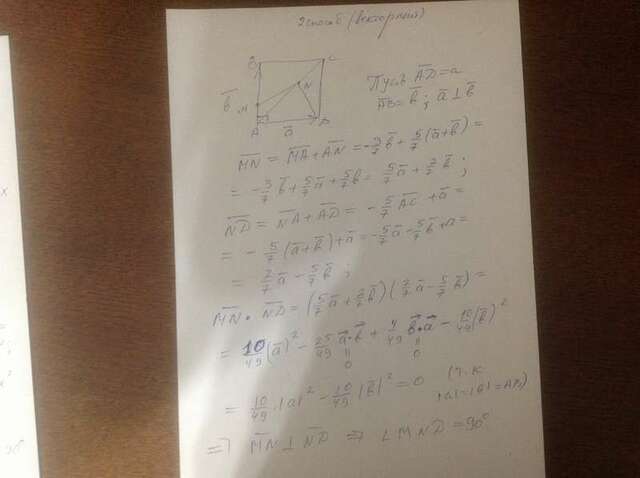 2 способ (векторный)
B
C
N
M
b̅
A
a̅
D
Пусть A̅D̅ = a̅
A̅B̅ = b̅; a̅ ⊥ b̅
M̅N̅ = M̅A̅ + A̅N̅ = -3/7 b̅ + 5/7 (a̅ + b̅) =
= -3/7 b̅ + 5/7 a̅ + 5/7 b̅ = 5/7 a̅ + 2/7 b̅ ;
N̅D̅ = N̅A̅ + A̅D̅ = -5/7 A̅C̅ + a̅ =
= -5/7 (a̅ + b̅) + a̅ = -5/7 a̅ - 5/7 b̅ + a̅ =
= 2/7 a̅ - 5/7 b̅ ;
M̅N̅ · N̅D̅ = (5/7 a̅ + 2/7 b̅) (2/7 a̅ - 5/7 b̅) =
= 10/49 (a̅)² - 25/49 a̅·b̅ + 4/49 b̅·a̅ - 10/49 (b̅)²
|| ||
0 0
= 10/49 · |a|² - 10/49 |b̅|² = 0 (т.к
|a| = |b̅| = AB)
=> M̅N̅ ⊥ N̅D̅ => ∠MND = 90°
90°